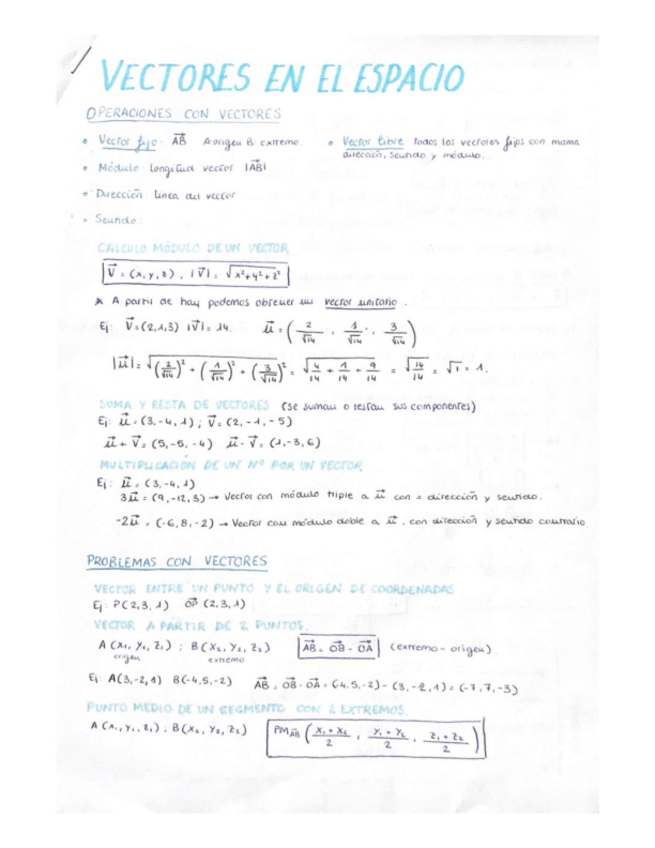 VECTORES EN EL ESPACIO
OPERACIONES CON VECTORES
• Vector fijo: AB⃗ A:origen B: extremo.
• Vector libre: todos los vectores fijos con misma
dirección, sentido y módulo.
• Módulo: longitud vector |AB⃗|
• Dirección: línea del vector
• Sentido:
CALCULO MÓDULO DE UN VECTOR
V⃗ = (x, y, z) , |V⃗| = √x²+y²+z²
* A partir de hay podemos obtener un vector unitario.
Ej: V⃗=(2,1,3) |V⃗|= 14. u⃗ = (2/√14 , 1/√14 , 3/√14)
|u⃗| = √(2/√14)² + (1/√14)² + (3/√14)² = √4/14 + 1/14 + 9/14 = √14/14 = √1 = 1.
SUMA Y RESTA DE VECTORES (Se suman o restan sus componentes)
Ej: u⃗ = (3,-4,1) ; V⃗ = (2,-1,-5)
u⃗ + V⃗ = (5,-5,-4) u⃗ - V⃗ = (1,-3,6)
MULTIPLICACIÓN DE UN Nº POR UN VECTOR
Ej: u⃗ = (3,-4,1)
3u⃗ = (9,-12,3) → Vector con módulo triple a u⃗ con = dirección y sentido.
-2u⃗ = (-6,8,-2) → Vector con módulo doble a u⃗, con dirección y sentido contrario
PROBLEMAS CON VECTORES
VECTOR ENTRE UN PUNTO Y EL ORIGEN DE COORDENADAS
Ej: P(2,3,1) OP⃗ (2,3,1)
VECTOR A PARTIR DE 2 PUNTOS.
A (x₁, y₁, z₁) ; B (x₂, y₂, z₂) AB⃗ = OB⃗ - OA⃗ (extremo - origen).
origen extremo
Ej: A(3,-2,1) B(-4,5,-2) AB⃗ = OB⃗ - OA⃗ = (-4,5,-2) - (3,-2,1) = (-7,7,-3)
PUNTO MEDIO DE UN SEGMENTO CON 2 EXTREMOS.
A (x₁, y₁, z₁) ; B (x₂, y₂, z₂) PM AB⃗ (x₁ + x₂/2 , y₁ + y₂/2 , z₁ + z₂/2)